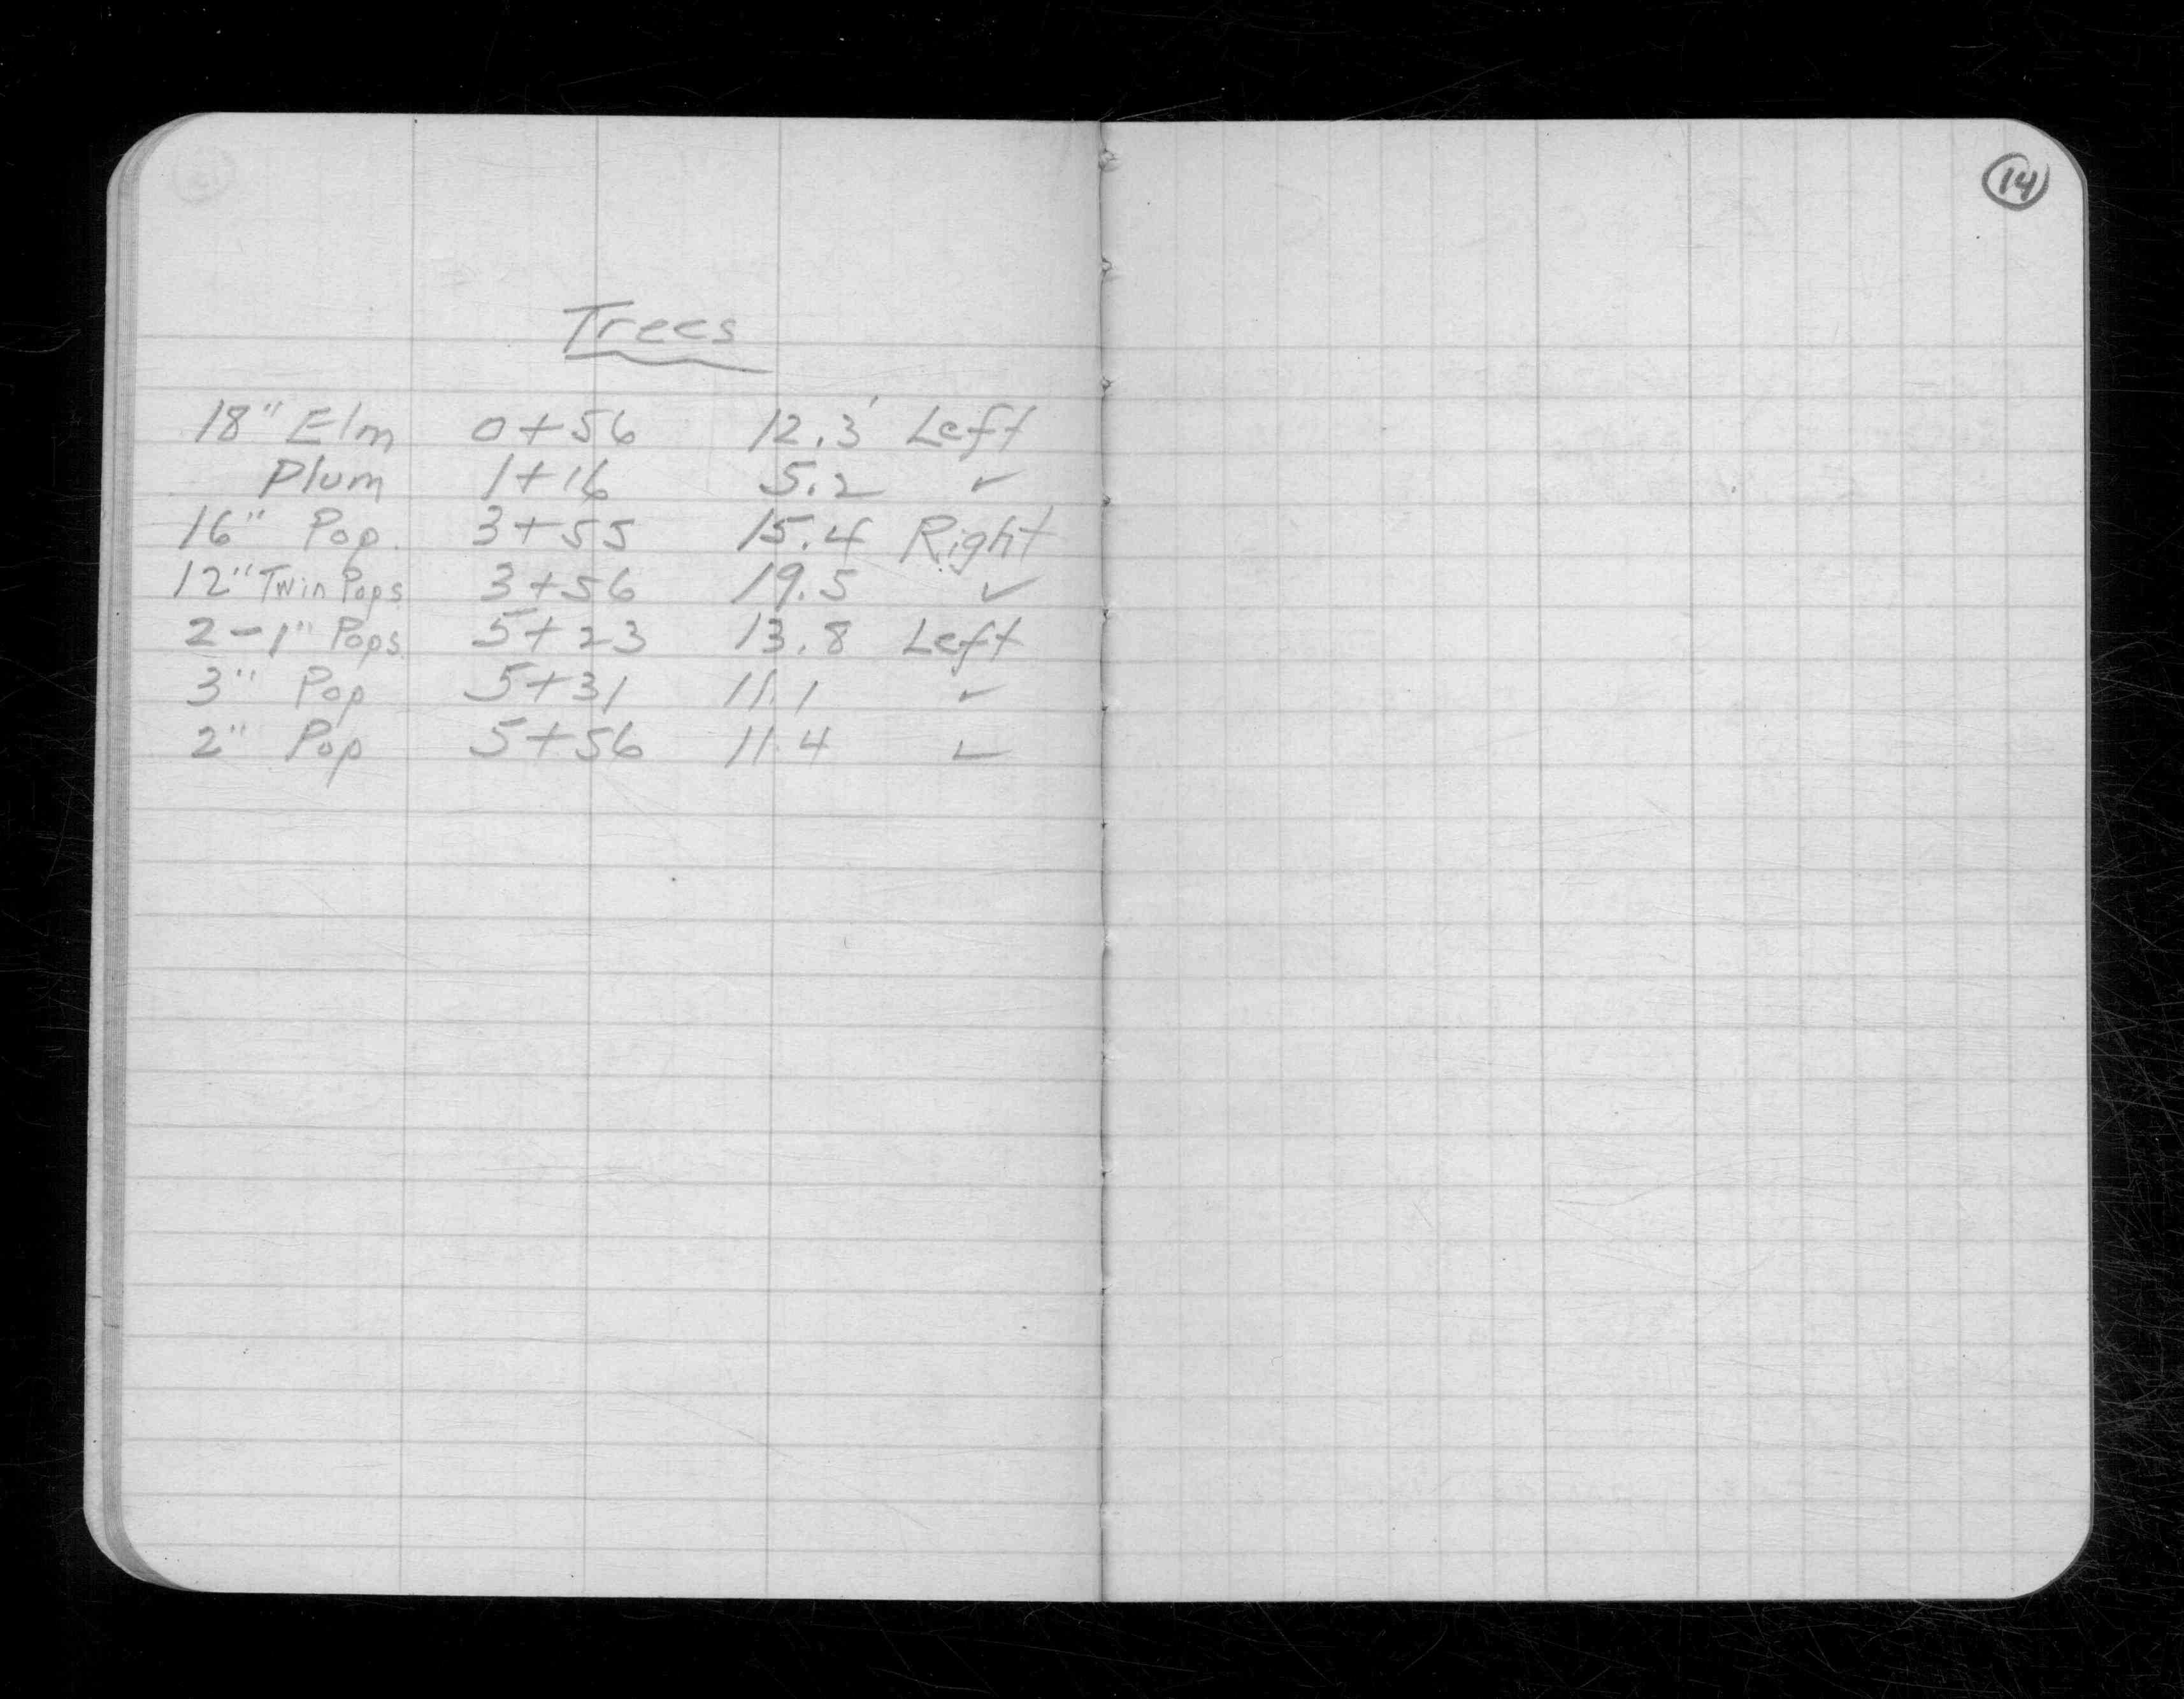 14
Trees
18" Elm 0+56 12.3' Left
Plum 1+16 5.2 ✓
16" Pop. 3+55 15.4 Right
12" Twin Pops 3+56 19.5 ✓
2-1" Pops. 5+23 13.8 Left
3" Pop 5+31 11.1 ✓
2" Pop 5+56 11.4 ✓